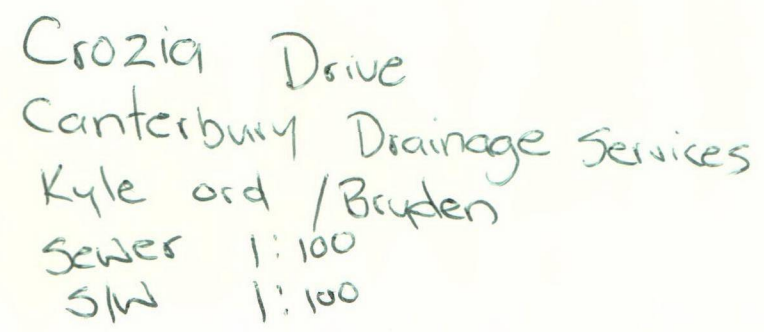 Crozia Drive
Canterbury Drainage Services
Kyle ord / Bryden
Sewer 1:100
S/W 1:100